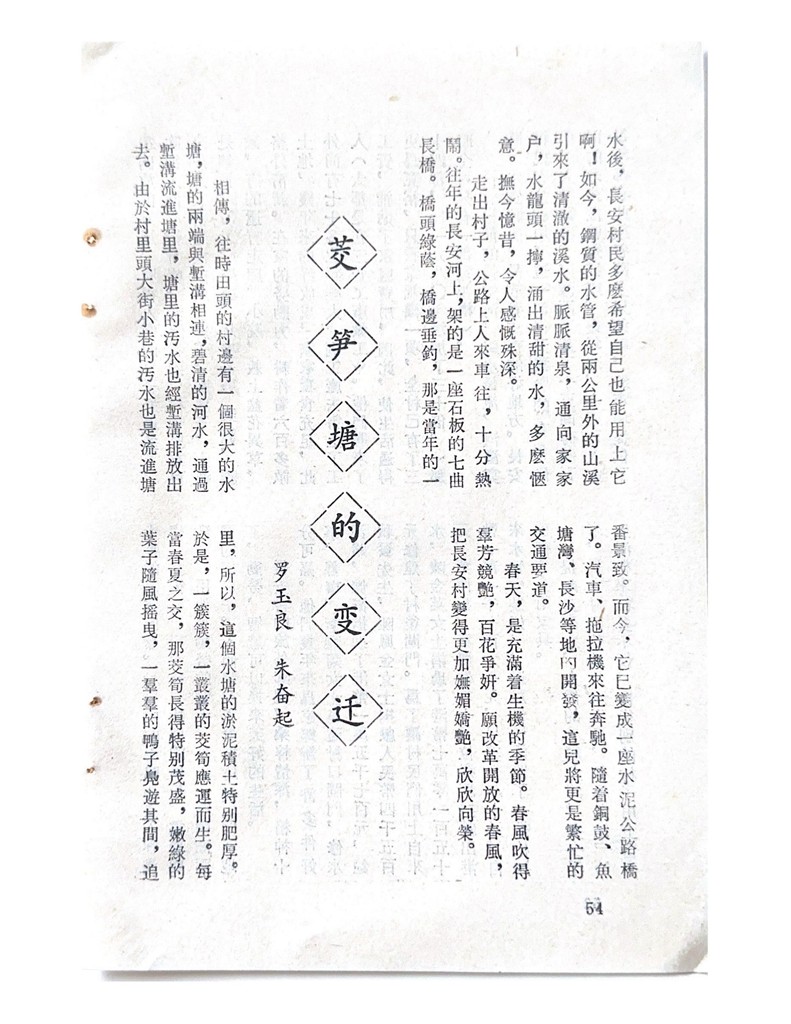 水後，長安村民多麼希望自己也能用上它
啊！如今，鋼質的水管，從兩公里外的山溪
引來了清澈的溪水。脈脈清泉，通向家家
户，水龍頭一擰，涌出清甜的水，多麽愜
意。撫今憶昔，令人感慨殊深。
走出村子，公路上人來車往，十分熱
鬧。往年的長安河上，架的是一座石板的七曲
長橋。橋頭綠蔭，橋邊垂釣，那是當年的一
番景致。而今，它巳變成一座水泥公路橋
了。汽車、拖拉機來往奔馳。隨着銅鼓、魚
塘灣、長沙等地的開發，這兒將更是繁忙的
交通要道。
春天，是充滿着生機的季節。春風吹得
羣芳競艷，百花爭妍。願改革開放的春風，
把長安村變得更加嫵媚嬌艷，欣欣向榮。
茭笋塘的变迁
罗玉良 朱奋起
相傳，往時田頭的村邊有一個很大的水
塘，塘的兩端與塹溝相連，碧清的河水，通過
塹溝流進塘里，塘里的污水也經塹溝排放出
去。由於村里頭大街小巷的污水也是流進塘
里，所以，這個水塘的淤泥積土特别肥厚。
於是，一簇簇，一叢叢的茭筍應運而生。每
當春夏之交，那茭筍長得特别茂盛，嫩綠的
葉子隨風搖曳，一羣羣的鴨子鳧遊其間，追
54